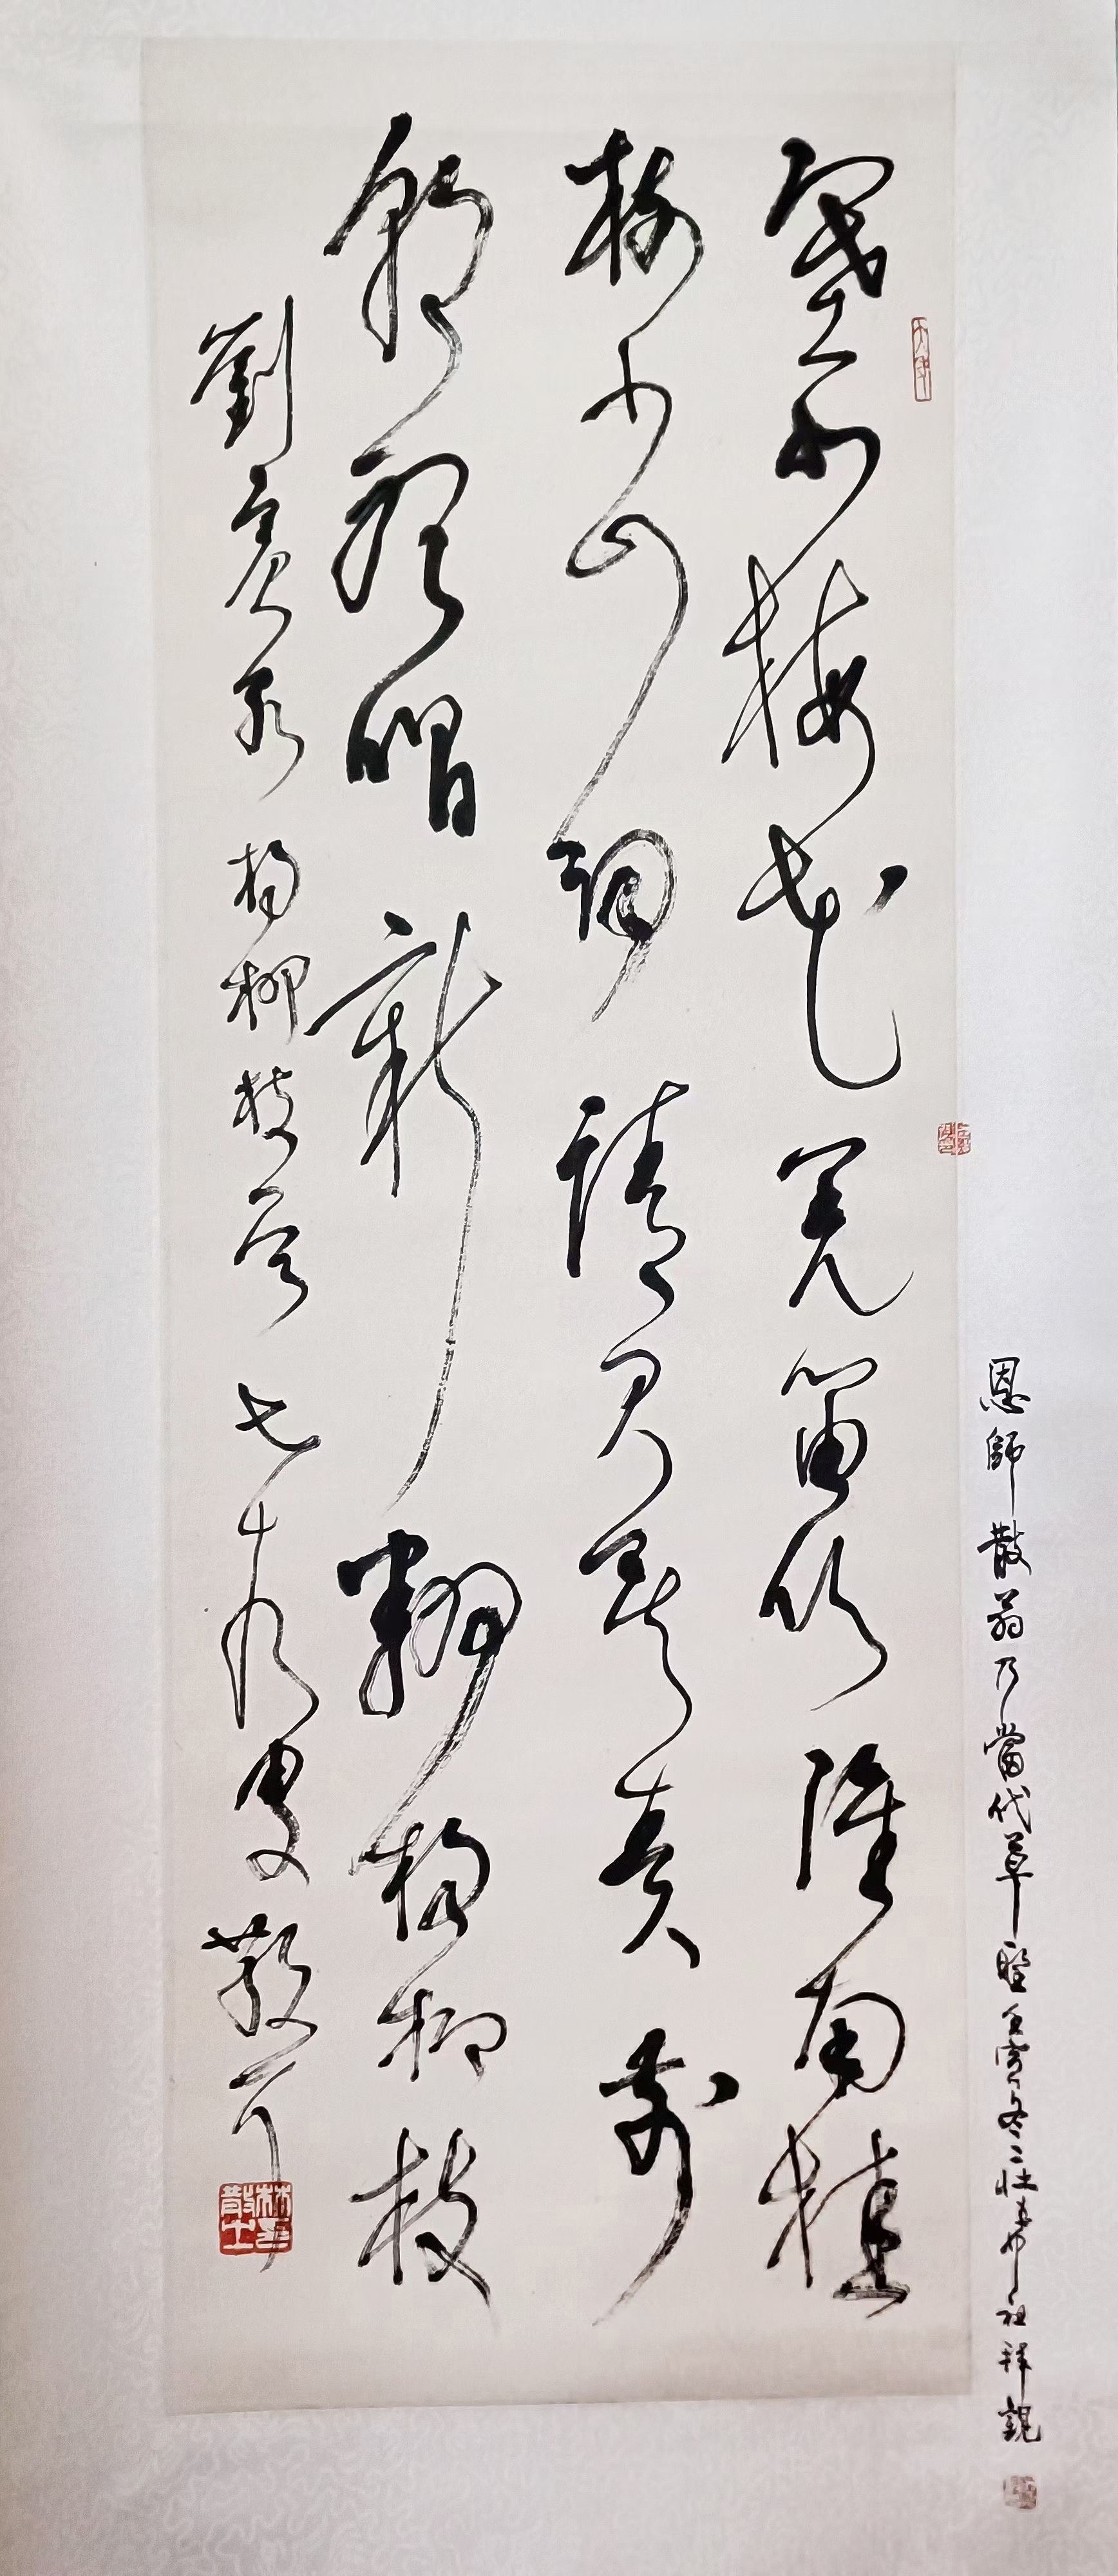 恩師散翁乃當代草聖 壬寅冬莊希祖拜觀
塞北梅花羌笛吹淮南桂
樹小山詞請君莫奏前
朝聽唱新翻楊柳枝
劉賓客楊柳枝詞 七十九叟散耳